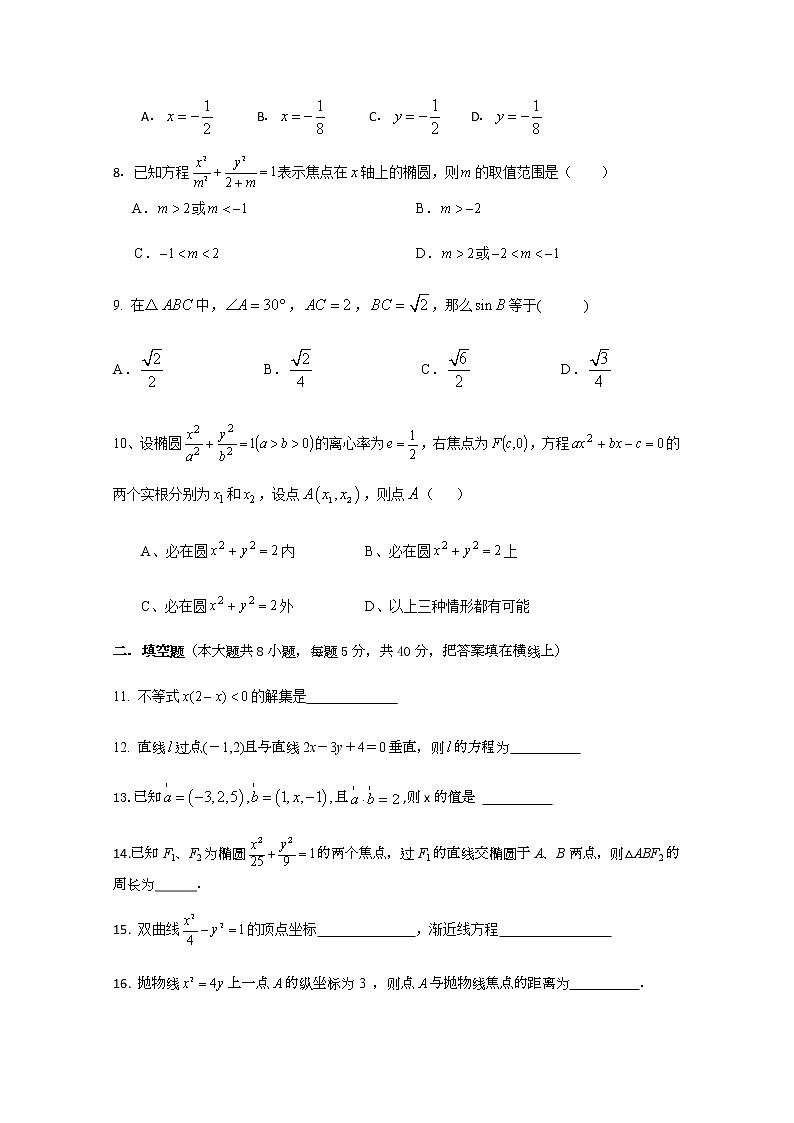 A． x = −1/2 B． x = −1/8 C． y = −1/2 D． y = −1/8
8．已知方程 x²/m² + y²/(2+m) = 1 表示焦点在 x 轴上的椭圆，则 m 的取值范围是（ ）
A．m > 2 或 m < −1 B．m > −2
C．−1 < m < 2 D．m > 2 或 −2 < m < −1
9. 在△ ABC 中，∠A = 30°，AC = 2，BC = √2，那么 sin B 等于( )
A．√2/2 B．√2/4 C．√6/2 D．√3/4
10、设椭圆 x²/a² + y²/b² = 1(a > b > 0) 的离心率为 e = 1/2，右焦点为 F(c,0)，方程 ax² + bx − c = 0 的
两个实根分别为 x₁ 和 x₂，设点 A(x₁, x₂)，则点 A（ ）
A、必在圆 x² + y² = 2 内 B、必在圆 x² + y² = 2 上
C、必在圆 x² + y² = 2 外 D、以上三种情形都有可能
二．填空题（本大题共 8 小题，每题 5 分，共 40 分，把答案填在横线上）
11. 不等式 x(2 − x) < 0 的解集是_____________
12. 直线 l 过点(－1,2)且与直线 2x－3y＋4＝0 垂直，则 l 的方程为__________
13.已知 a = (−3,2,5), b = (1, x, −1), 且 a · b = 2 ,则 x 的值是 __________
14.已知 F₁、F₂ 为椭圆 x²/25 + y²/9 = 1 的两个焦点，过 F₁ 的直线交椭圆于 A、B 两点，则△ABF₂ 的
周长为______．
15. 双曲线 x²/4 − y² = 1 的顶点坐标______________，渐近线方程________________
16. 抛物线 x² = 4y 上一点 A 的纵坐标为 3 ，则点 A 与抛物线焦点的距离为__________．